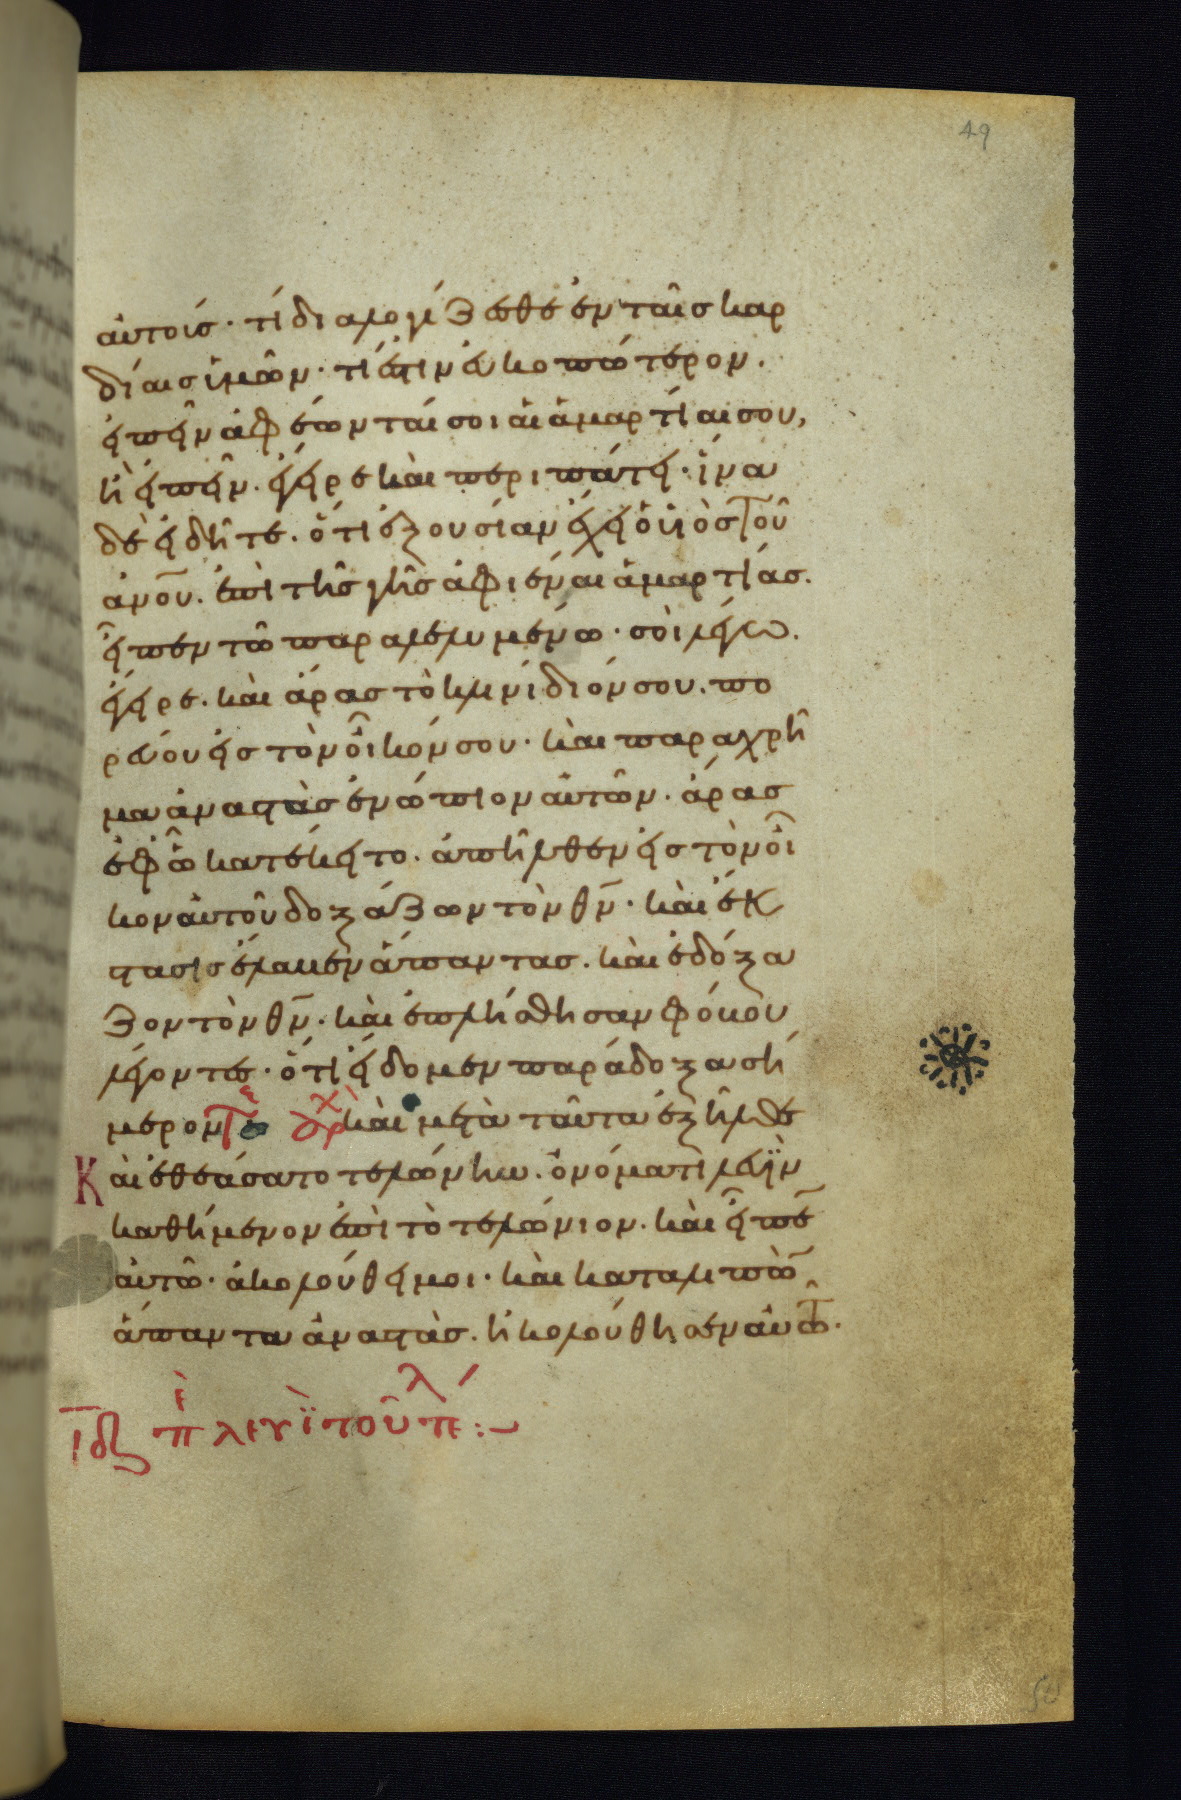 49
αὐτοίς· τί διαλογίζεσθε ἐν ταῖς καρ
δίαις ὑμῶν· τί ἐστιν εὐκοπώτερον.
εἰπεῖν ἀφέωνταί σοι αἱ ἁμαρτίαι σου,
ἢ εἰπεῖν. ἔγειρε καὶ περιπάτει· ἵνα
δὲ εἰδῆτε. ὅτι ἐξουσίαν ἔχει ὁ υἱὸς τοῦ
ἀνου. ἐπὶ τῆς γῆς ἀφιέναι ἁμαρτίας.
εἶπεν τῶ παραλελυμένω· σοὶ λέγω.
ἔγειρε. καὶ ἄρας τὸ κλινίδιόν σου. πο
ρεύου εἰς τὸν οἶκόν σου· καὶ παραχρῆ
μα ἀναστὰς ἐνώπιον αὐτῶν. ἄρας
ἐφ ὧ κατέκειτο. ἀπῆλθεν εἰς τὸν οἶ
κον αὐτοῦ δοξάζων τὸν θν· καὶ ἔκ
στασις ἔλαβεν ἅπαντας. καὶ ἐδόξα
ζον τὸν θν. καὶ ἐπλήσθησαν φόβου
λέγοντες· ὅτι εἴδομεν παράδοξα σή
μερον καὶ μετὰ ταῦτα ἐξῆλθε
Καὶ ἐθεάσατο τελώνην. ὀνόματι λευϊν
καθήμενον ἐπὶ τὸ τελώνιον. καὶ εἶπε
αὐτῶ· ἀκολούθει μοι· καὶ καταλιπὼ
ἅπαντα ἀναστὰς. ἠκολούθησεν αὐτῶ.
ιδ πε λευϊ τοῦ τελ